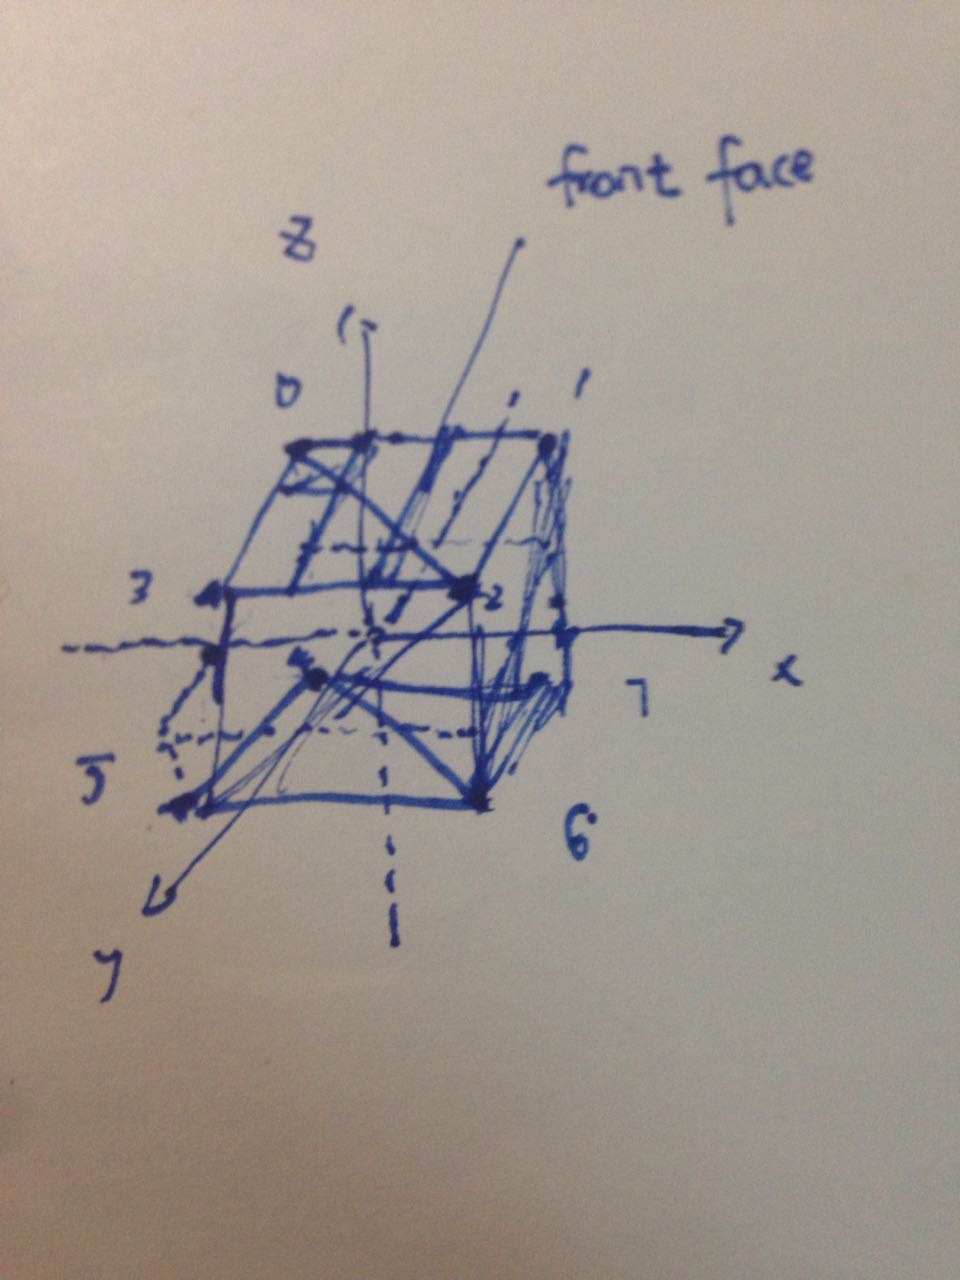 front face
z
0
1
3
2
4
x
7
5
6
y